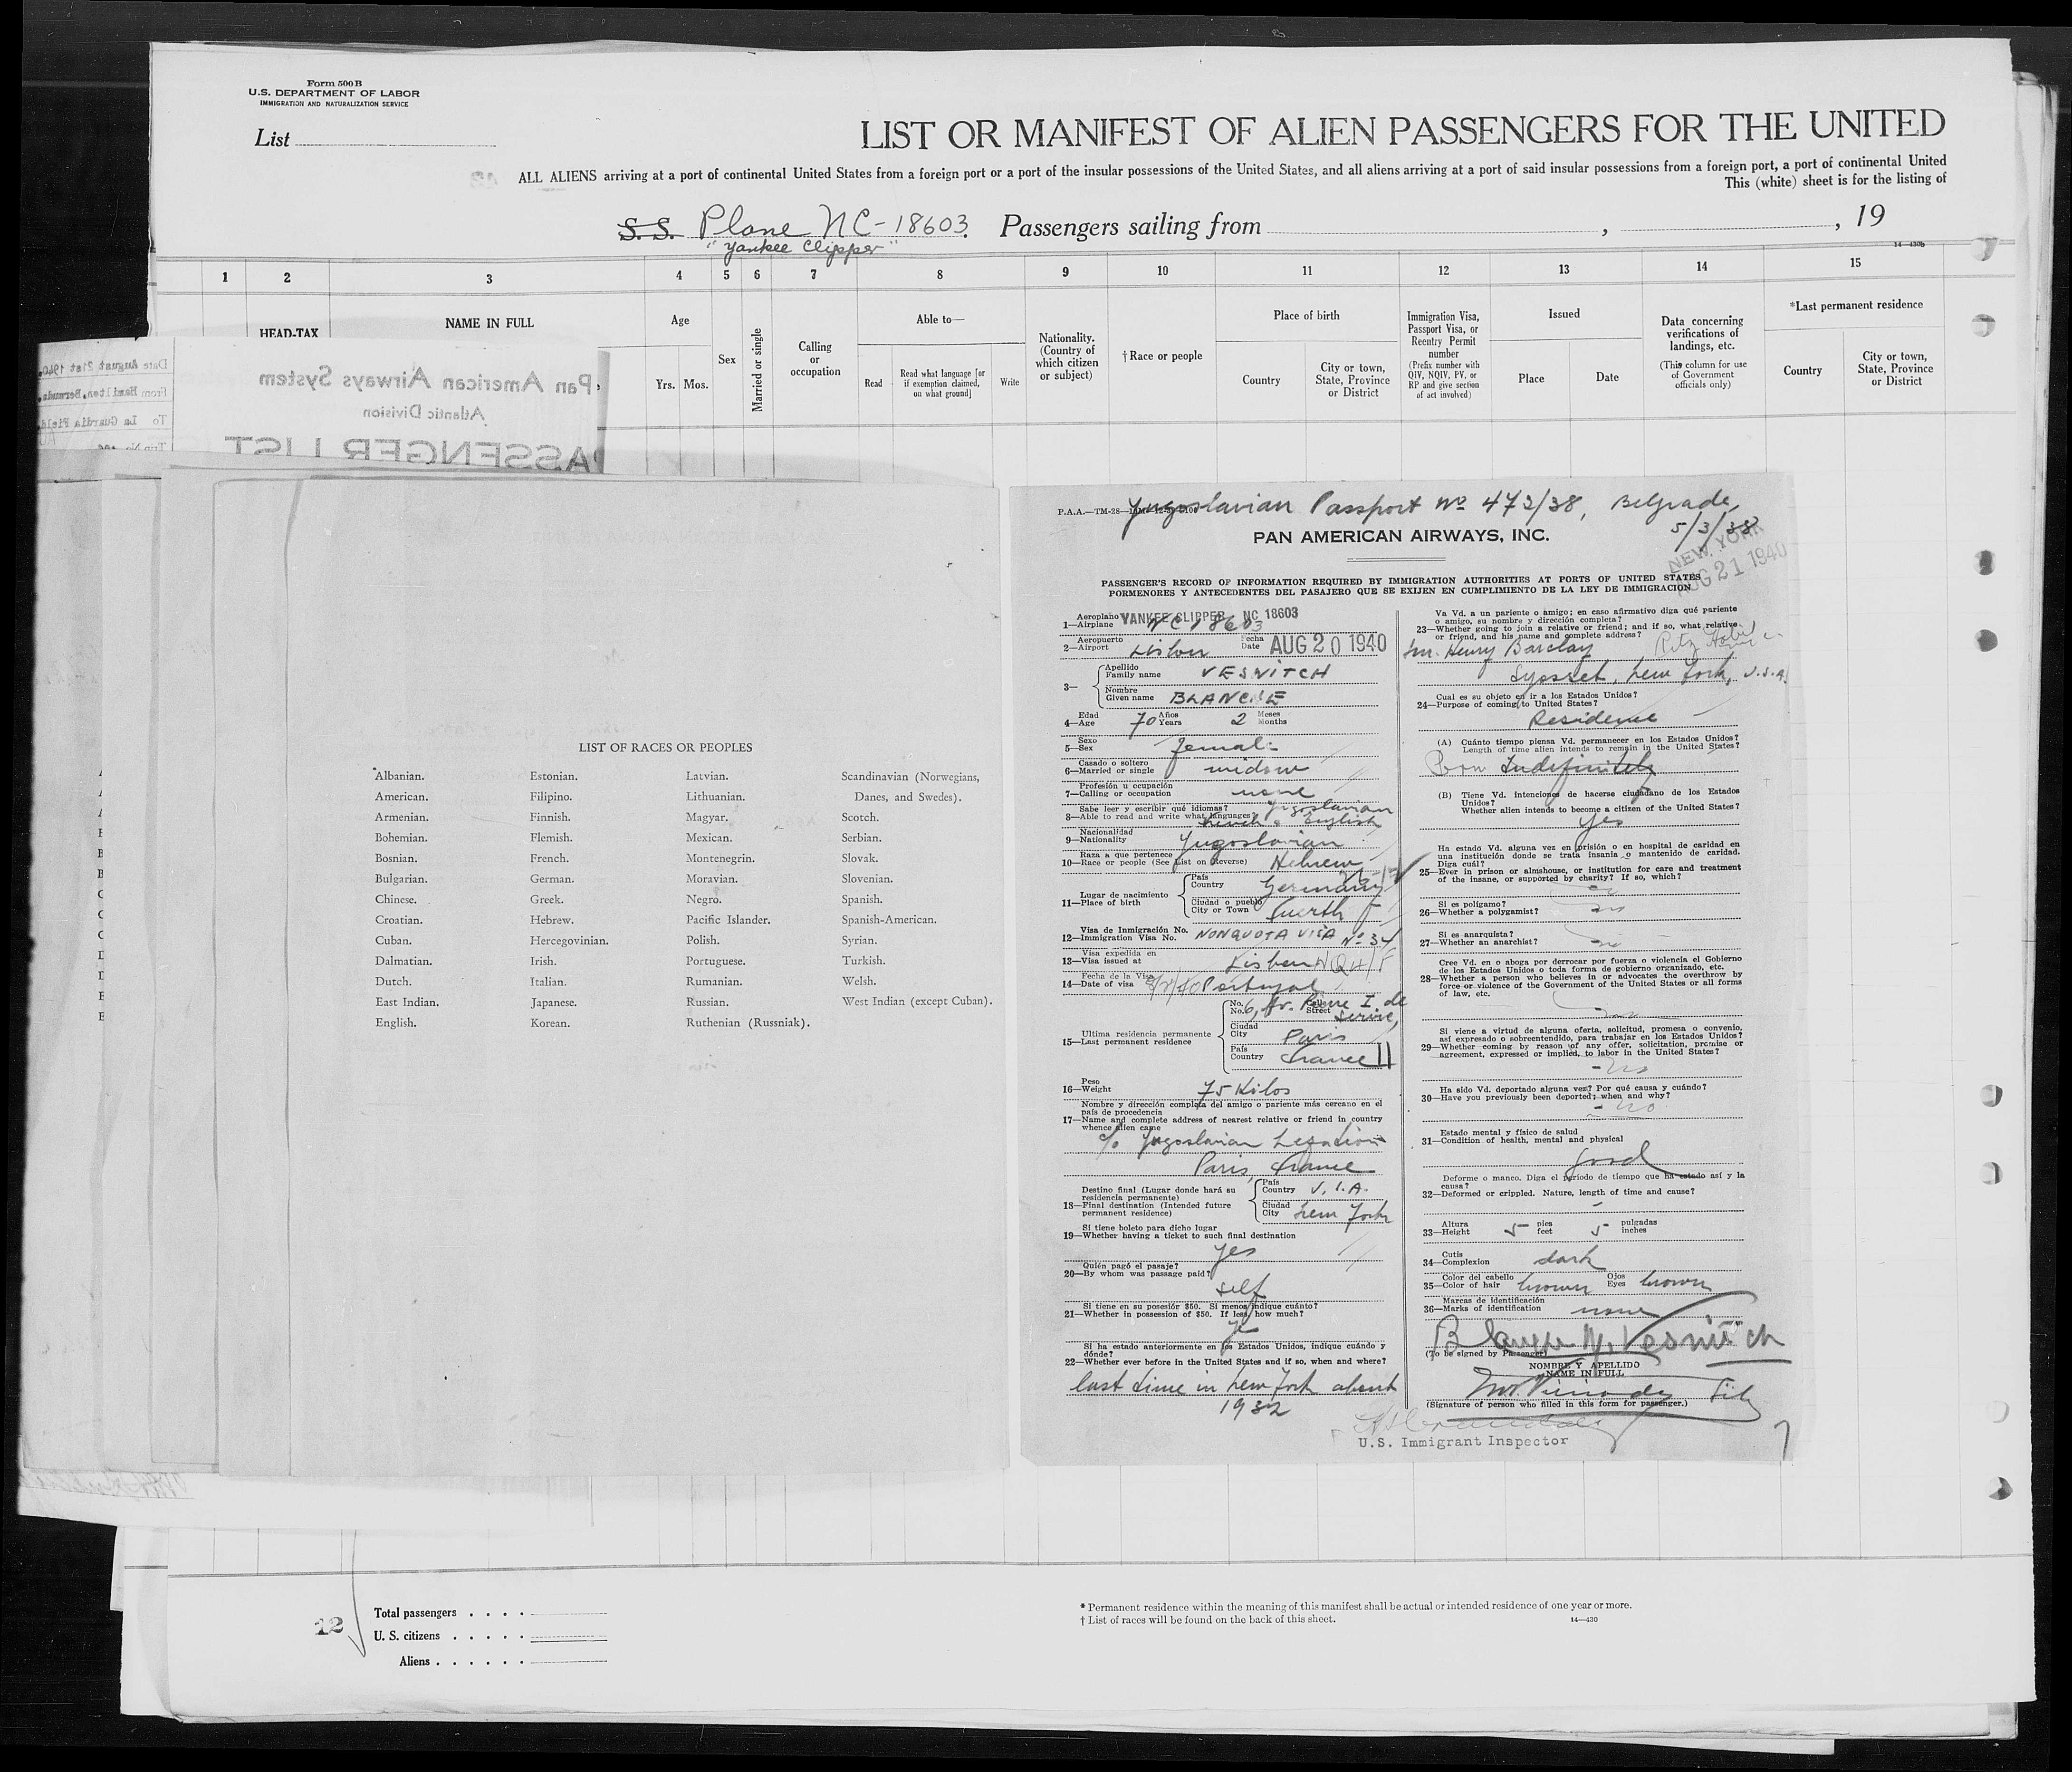 Form 500 B
U.S. DEPARTMENT OF LABOR
IMMIGRATION AND NATURALIZATION SERVICE
List
LIST OR MANIFEST OF ALIEN PASSENGERS FOR THE UNITED
ALL ALIENS arriving at a port of continental United States from a foreign port or a port of the insular possessions of the United States, and all aliens arriving at a port of said insular possessions from a foreign port, a port of continental United
This (white) sheet is for the listing of
S. S. Plane NC-18603. Passengers sailing from , , 19
"Yankee Clipper"
14—430b
1 2 3 4 5 6 7 8 9 10 11 12 13 14 15
HEAD-TAX
NAME IN FULL
Age
Yrs. Mos.
Sex
Married or single
Calling
or
occupation
Able to—
Read
Read what language [or
if exemption claimed,
on what ground]
Write
Nationality.
(Country of
which citizen
or subject)
†Race or people
Place of birth
Country
City or town,
State, Province
or District
Immigration Visa,
Passport Visa, or
Reentry Permit
number
(Prefix number with
QIV, NQIV, PV, or
RP and give section
of act involved)
Issued
Place
Date
Data concerning
verifications of
landings, etc.
(This column for use
of Government
officials only)
*Last permanent residence
Country
City or town,
State, Province
or District
Date August 21st 1940.
From Hamilton, Bermuda.
To La Guardia Field
Pan American Airways System
Atlantic Division
PASSENGER LIST
LIST OF RACES OR PEOPLES
Albanian.
American.
Armenian.
Bohemian.
Bosnian.
Bulgarian.
Chinese.
Croatian.
Cuban.
Dalmatian.
Dutch.
East Indian.
English.
Estonian.
Filipino.
Finnish.
Flemish.
French.
German.
Greek.
Hebrew.
Hercegovinian.
Irish.
Italian.
Japanese.
Korean.
Latvian.
Lithuanian.
Magyar.
Mexican.
Montenegrin.
Moravian.
Negro.
Pacific Islander.
Polish.
Portuguese.
Rumanian.
Russian.
Ruthenian (Russniak).
Scandinavian (Norwegians,
Danes, and Swedes).
Scotch.
Serbian.
Slovak.
Slovenian.
Spanish.
Spanish-American.
Syrian.
Turkish.
Welsh.
West Indian (except Cuban).
Yugoslavian Passport No 472/38, Belgrade,
5/3/38
P.A.A.—TM-28
PAN AMERICAN AIRWAYS, INC.
NEW YORK
AUG 21 1940
PASSENGER'S RECORD OF INFORMATION REQUIRED BY IMMIGRATION AUTHORITIES AT PORTS OF UNITED STATES
PORMENORES Y ANTECEDENTES DEL PASAJERO QUE SE EXIJEN EN CUMPLIMIENTO DE LA LEY DE IMMIGRACION
Aeroplano
1—Airplane YANKEE CLIPPER NC 18603
NC 18603
Aeropuerto Fecha
2—Airport Lisbon Date AUG 20 1940
3— Apellido
Family name VESNITCH
Nombre
Given name BLANCHE
Edad Años Meses
4—Age 70 Years 2 Months
Sexo
5—Sex female
Casado o soltero
6—Married or single widow
Profesión u ocupación
7—Calling or occupation none
Sabe leer y escribir qué idiomas? Yugoslavian
8—Able to read and write what languages? French & English
Nacionalidad
9—Nationality Yugoslavian
Raza a que pertenece
10—Race or people (See List on Reverse) Hebrew
Lugar de nacimiento
11—Place of birth
País
Country Germany
Ciudad o pueblo
City or Town Fuerth
Visa de Inmigración No.
12—Immigration Visa No. NONQUOTA VISA No 34
Visa expedida en
13—Visa issued at Lisbon
Fecha de la Visa
14—Date of visa Portugal
Ultima residencia permanente
15—Last permanent residence
No.
No. 6, Av. Pierre I de
Calle
Street Serbie,
Ciudad
City Paris
País
Country France
Peso
16—Weight 75 Kilos
Nombre y dirección completa del amigo o pariente más cercano en el
país de procedencia
17—Name and complete address of nearest relative or friend in country
whence alien came
c/o Yugoslavian Legation
Paris, France
Destino final (Lugar donde hará su
residencia permanente)
18—Final destination (Intended future
permanent residence)
País
Country U.S.A.
Ciudad
City New York
Si tiene boleto para dicho lugar
19—Whether having a ticket to such final destination
yes
Quién pagó el pasaje?
20—By whom was passage paid?
self
Si tiene en su posesiór $50. Si menos indique cuánto?
21—Whether in possession of $50. If less, how much?
yes
Si ha estado anteriormente en los Estados Unidos, indique cuándo y
dónde?
22—Whether ever before in the United States and if so, when and where?
last time in New York about
1932
Va Vd. a un pariente o amigo; en caso afirmativo diga qué pariente
o amigo, su nombre y dirección completa?
23—Whether going to join a relative or friend; and if so, what relative
or friend, and his name and complete address?
Henry Barclay
Syosset, New York, U.S.A.
Cual es su objeto en ir a los Estados Unidos?
24—Purpose of coming to United States?
Residence
(A) Cuánto tiempo piensa Vd. permanecer en los Estados Unidos?
Length of time alien intends to remain in the United States?
Indefinitely
(B) Tiene Vd. intenciones de hacerse ciudadano de los Estados
Unidos?
Whether alien intends to become a citizen of the United States?
yes
Ha estado Vd. alguna vez en prisión o en hospital de caridad en
una institución donde se trata insania o mantenido de caridad.
Diga cuál?
25—Ever in prison or almshouse, or institution for care and treatment
of the insane, or supported by charity? If so, which?
no
Si es polígamo?
26—Whether a polygamist? no
Si es anarquista?
27—Whether an anarchist? no
Cree Vd. en o aboga por derrocar por fuerza o violencia el Gobierno
de los Estados Unidos o toda forma de gobierno organizado, etc.
28—Whether a person who believes in or advocates the overthrow by
force or violence of the Government of the United States or all forms
of law, etc.
no
Si viene a virtud de alguna oferta, solicitud, promesa o convenio,
así expresado o sobreentendido, para trabajar en los Estados Unidos?
29—Whether coming by reason of any offer, solicitation, promise or
agreement, expressed or implied, to labor in the United States?
- no
Ha sido Vd. deportado alguna vez? Por qué causa y cuándo?
30—Have you previously been deported; when and why?
- no
Estado mental y físico de salud
31—Condition of health, mental and physical
good
Deforme o manco. Diga el período de tiempo que ha estado así y la
causa?
32—Deformed or crippled. Nature, length of time and cause?
-
Altura pies pulgadas
33—Height 5 feet 5 inches
Cutis
34—Complexion dark
Color del cabello Ojos
35—Color of hair brown Eyes brown
Marcas de identificación
36—Marks of identification none
Blanche Vesnitch
(To be signed by Passenger)
NOMBRE Y APELLIDO
NAME IN FULL
(Signature of person who filled in this form for passenger.)
U.S. Immigrant Inspector
7
12
Total passengers . . . .
U. S. citizens . . . . .
Aliens . . . . . .
* Permanent residence within the meaning of this manifest shall be actual or intended residence of one year or more.
† List of races will be found on the back of this sheet.
14—430